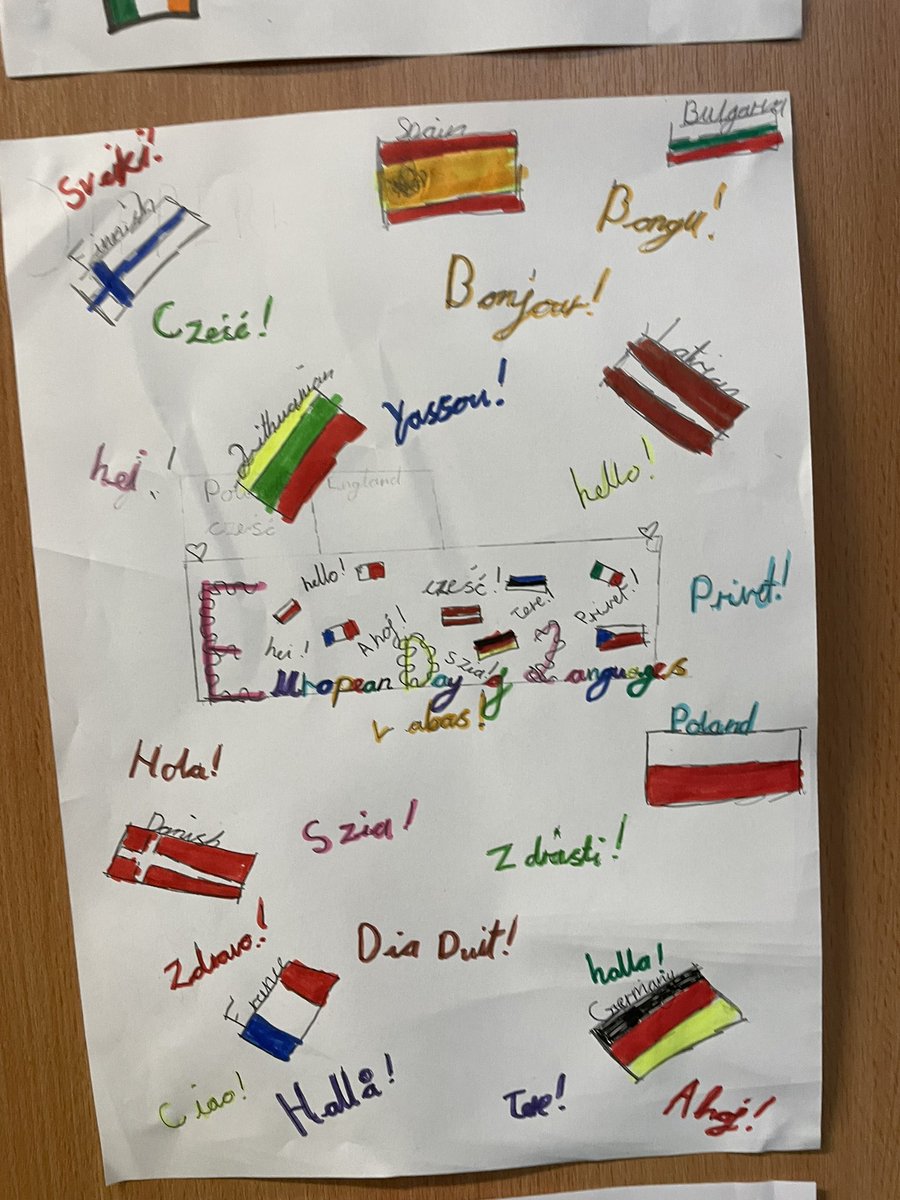 Sveiki!
Spain
Bulgaria
Finnish
Bongu!
Cześć!
Bonjour!
Latvian
Lithuanian
Yassou!
hej!
hello!
England
cześć
hello!
cześć!
Tere!
Privet!
Privet!
hei!
Ahoj!
Szia!
European Day of Languages
Labas!
Poland
Hola!
Danish
Szia!
Zdrasti!
Zdravo!
Dia Duit!
hallo!
France
Germany
Ciao!
Hallå!
Tere!
Ahoj!